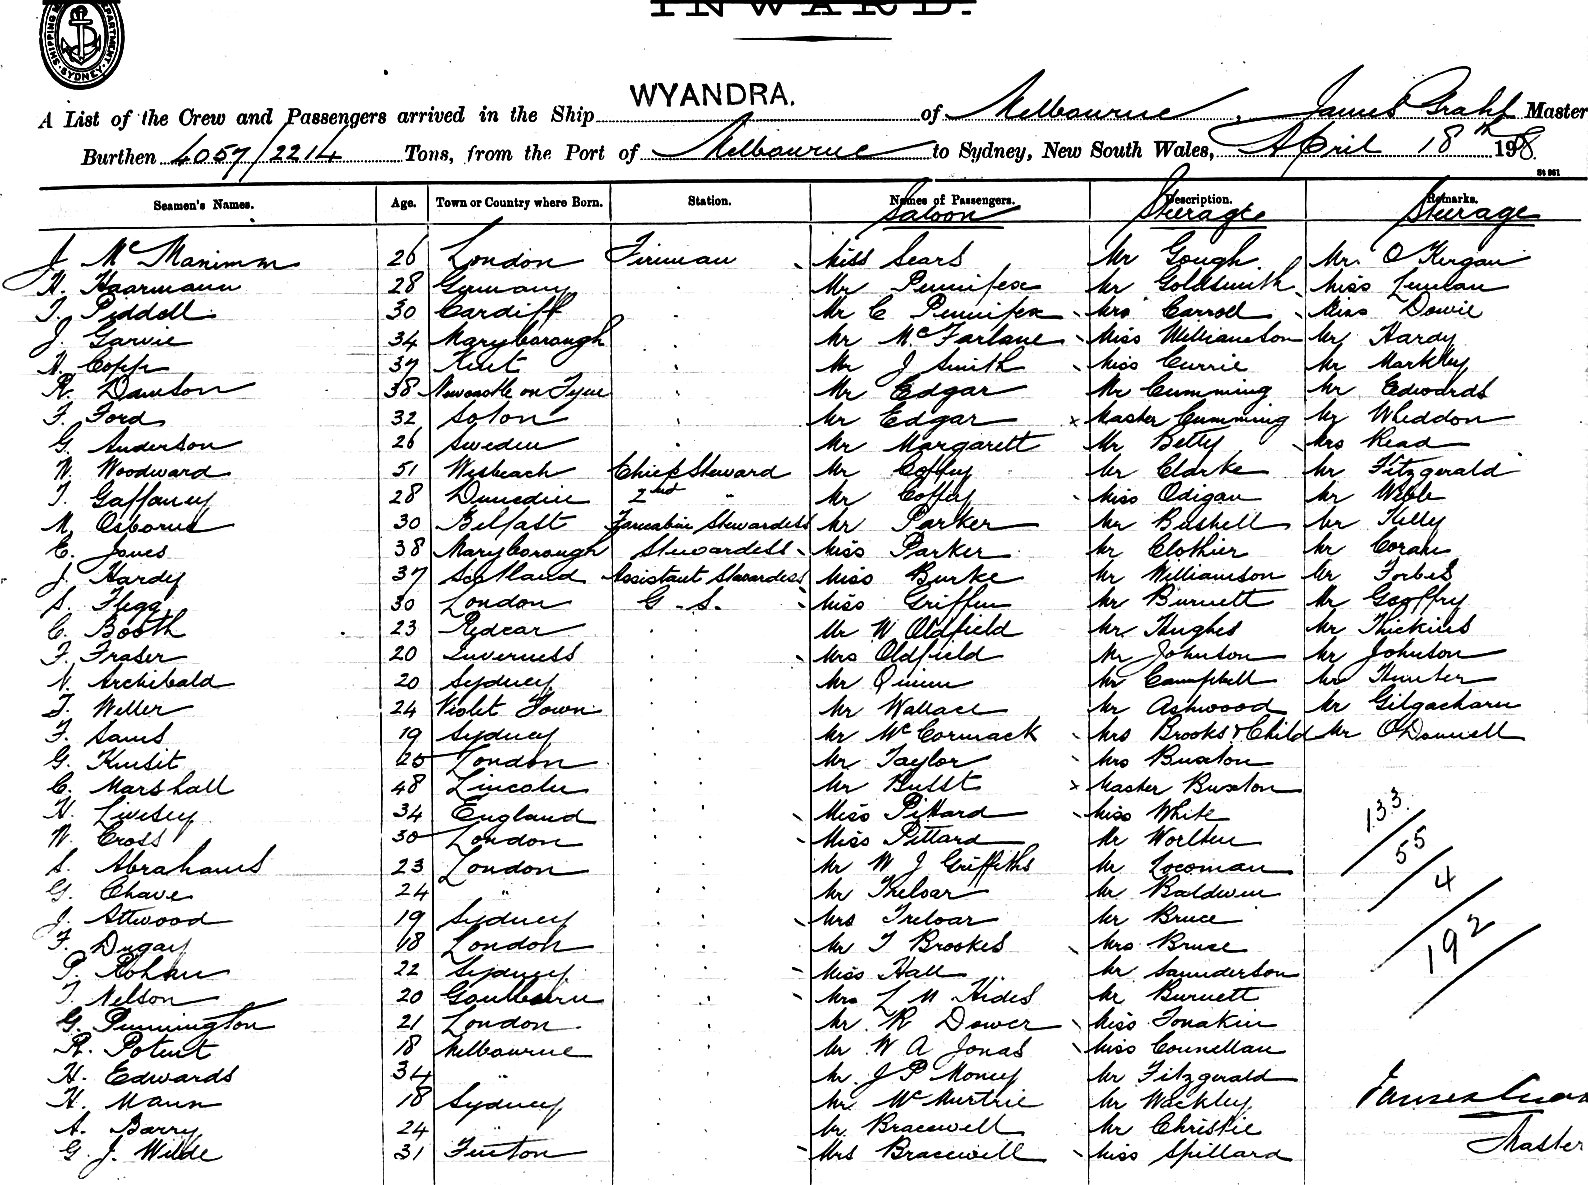 INWARD.
SHIPPING DEPARTMENT SYDNEY
A List of the Crew and Passengers arrived in the Ship WYANDRA. of Melbourne, James Grahl Master
Burthen 4057/2214 Tons, from the Port of Melbourne to Sydney, New South Wales, April 18th 198
Seamen's Names. Age. Town or Country where Born. Station. Names of Passengers. Description. Remarks.
Saloon Steerage Steerage
J. McManimm 26 London Fireman Miss Sears Mr Gough Mrs O'Kergan
H. Haarmann 28 Germany Mr Pennifex Mr Goldsmith Miss Lennan
T. Piddell 30 Cardiff Mr C Pennifex Mrs Carroll Miss Dowie
J. Garvie 34 Maryborough Mr McFarlane Miss Williamston Mr Hardy
H. Copp 37 Kent Mr J Smith Miss Currie Mr Markley
R. Dawson 38 Newcastle on Tyne Mr Edgar Mr Cumming Mr Edwards
F. Ford 32 Soton Mr Edgar Master Cumming Mr Wheddon
G. Anderson 26 Sweden Mr Margarett Mr Betty Mrs Read
W. Woodward 51 Wisbeach Chief Steward Mr Coffey Mr Clarke Mr Fitzgerald
T. Gaffaney 28 Dunedin 2nd " Mr Coffey Miss Odigan Mr Webb
M. Osborne 30 Belfast Forecabin Stewardess Mr Parker Mr Bushell Mr Kelly
C. Jones 38 Maryborough Stewardess Miss Parker Mr Clothier Mr Coram
J. Hardy 37 Scotland Assistant Stewardess Miss Burke Mr Williamson Mr Forbes
S. Flegg 30 London G. S. Miss Griffin Mr Burnett Mr Geoffry
C. Booth 23 Redcar Mr W Oldfield Mr Hughes Mr Thickins
F. Fraser 20 Inverness Mrs Oldfield Mr Johnson Mr Johnson
N. Archibald 20 Sydney Mr Quinn Mr Campbell Mr Hunter
T. Weller 24 Violet Town Mr Wallace Mr Ashwood Mr Gilgacharn
F. Sams 19 Sydney Mr McCormack Mrs Brooks & Child Mr O'Donnell
G. Kinsit 25 London Mr Taylor Mrs Buxton
C. Marshall 48 Lincoln Mr Busst Master Buxton
H. Livesey 34 England Miss Pittard Miss White
W. Cross 30 London Miss Pittard Mr Worlten
S. Abrahams 23 London Mr W J Griffiths Mr Locoman
G. Chave 24 " Mr Treloar Mr Baldwin
J. Attwood 19 Sydney Mrs Treloar Mr Bruce
F. Dugay 18 London Mr T Brookes Mrs Bruce
P. Rohan 22 Sydney Miss Hall Mr Saunderson
T. Nelson 20 Goulburn Mrs L M Hides Mr Burnett
G. Pennington 21 London Mr R Dower Miss Tonakin
R. Potent 18 Melbourne Mr W A Jonas Miss Counellan
H. Edwards 34 " Mr J P Money Mr Fitzgerald
H. Mann 18 Sydney Mr McMurtrie Mr Wackley
A. Barry 24 " Mr Bracewell Mr Christie
G. J. Wilde 31 Finton Mrs Bracewell Miss Spillard
133
55
4
192
James
Master